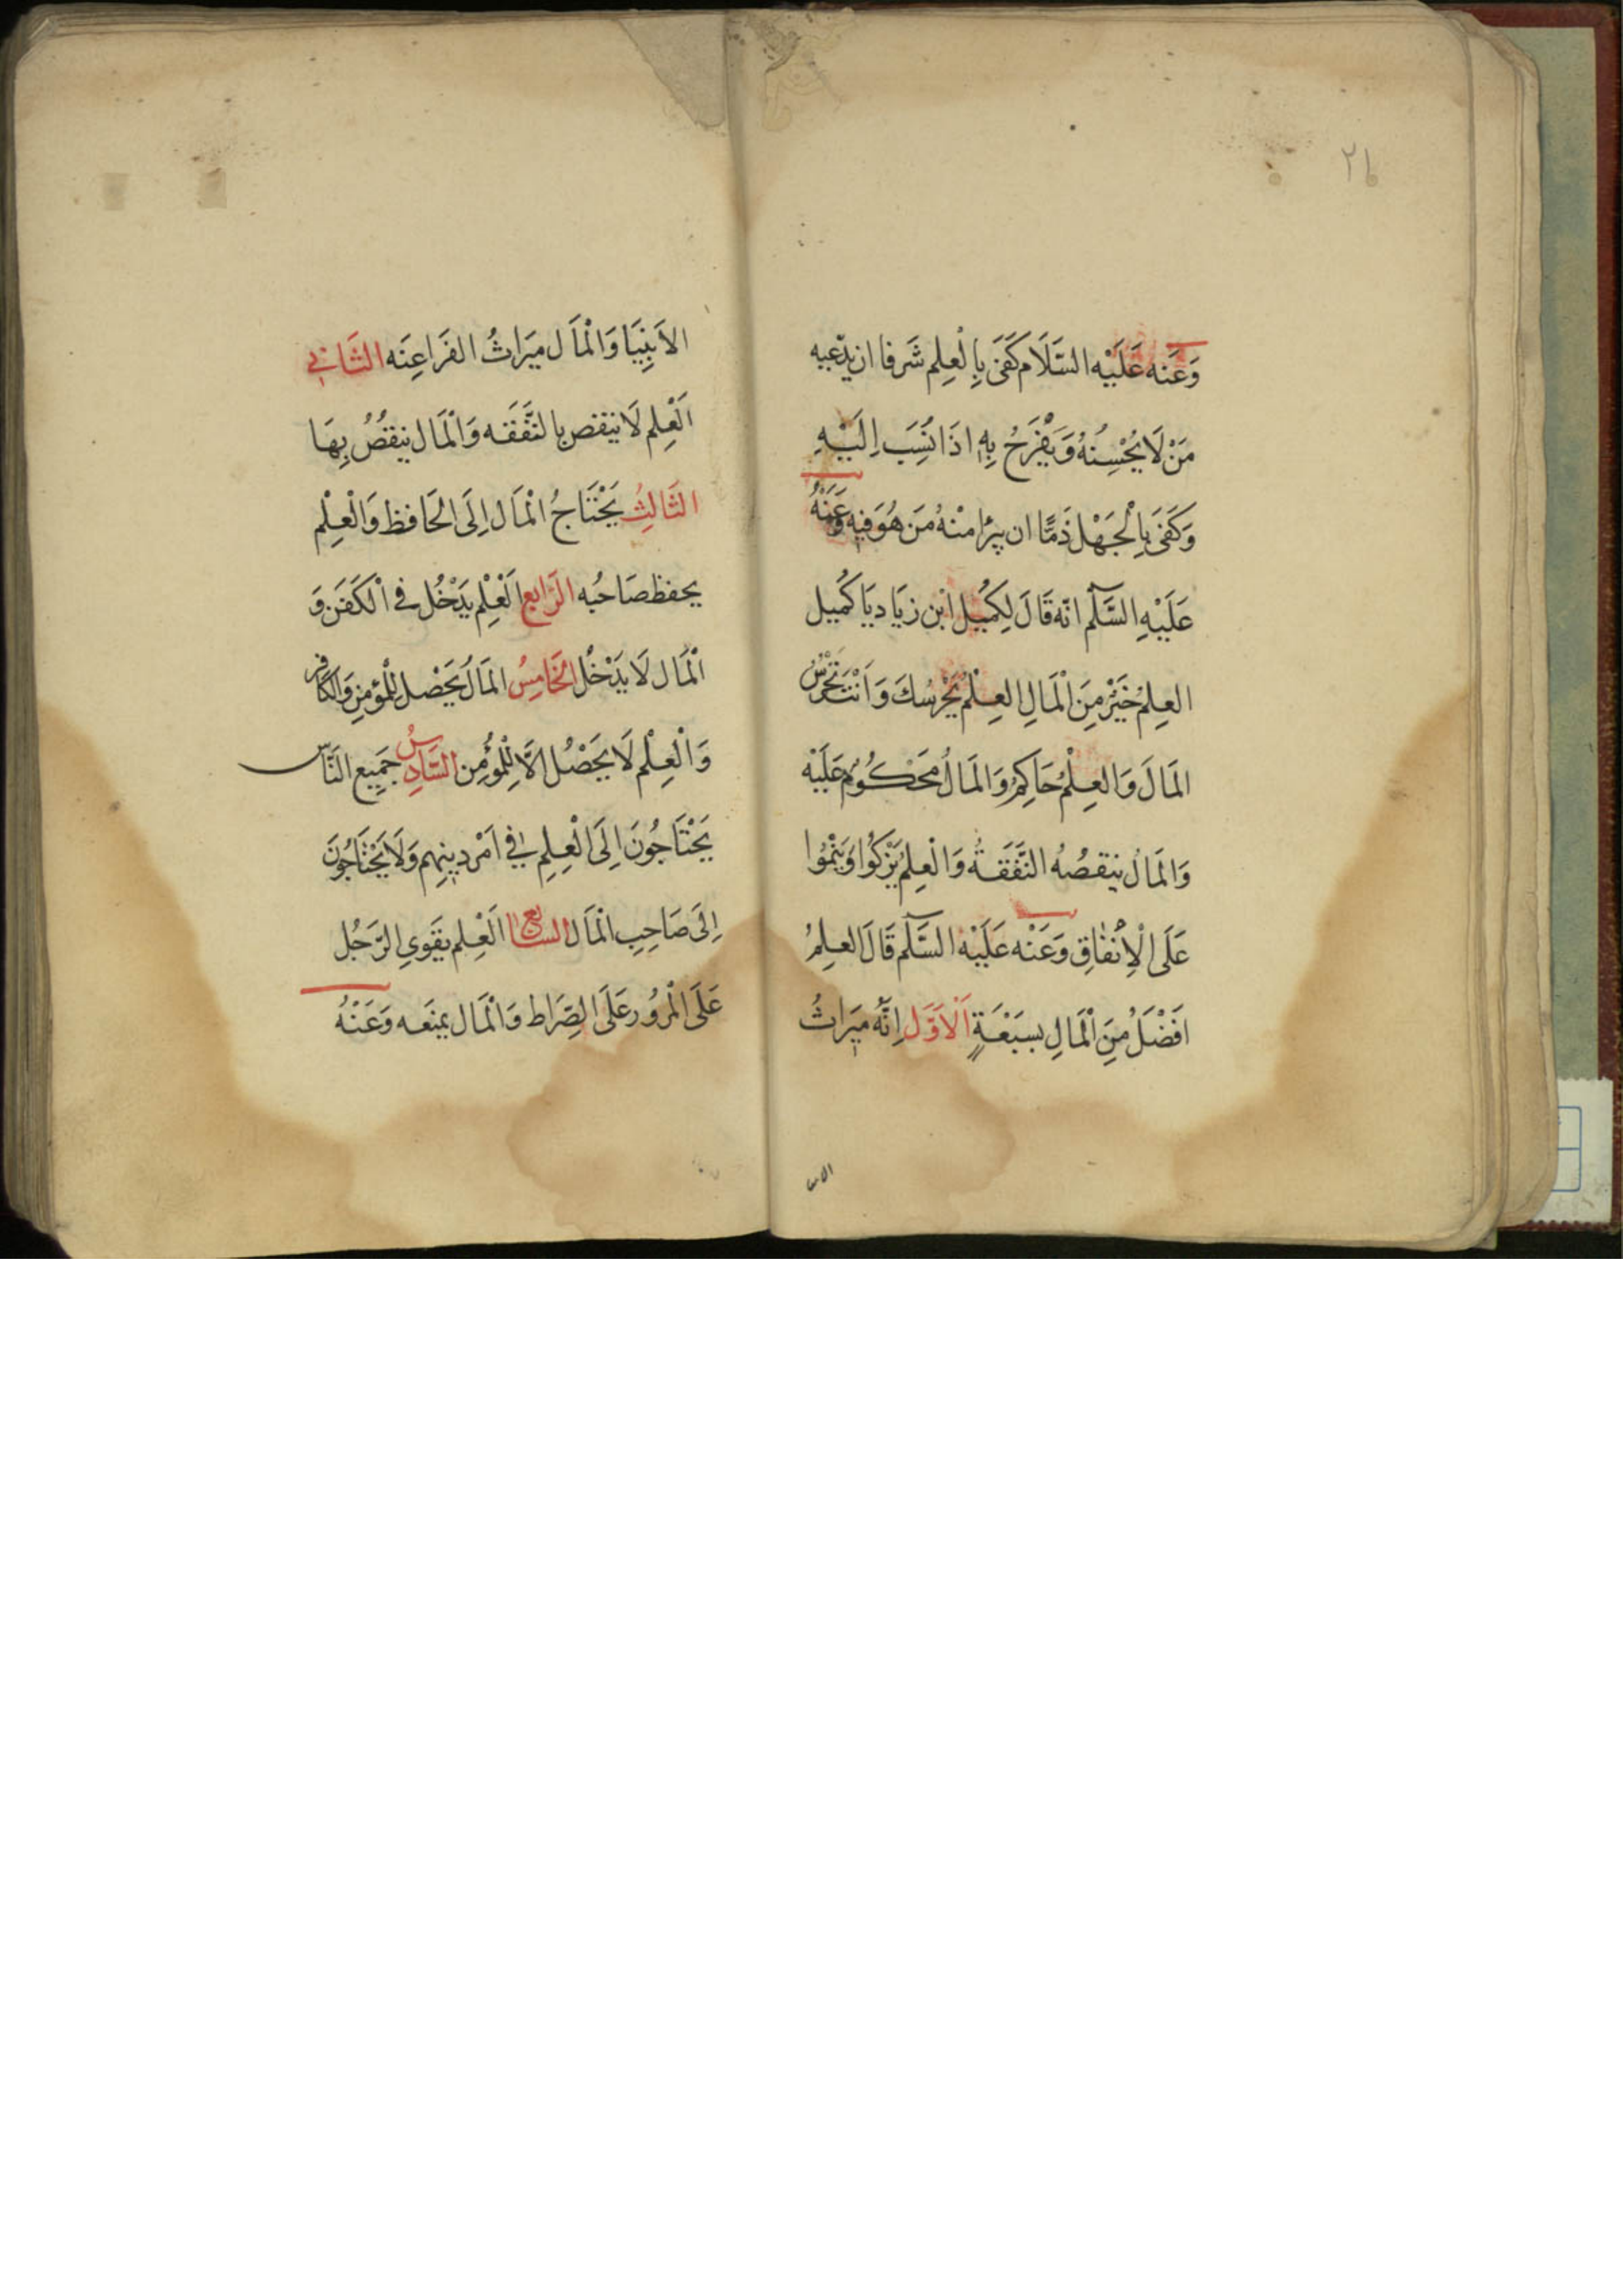 ٢١
وَعَنه عَلَيْه السَّلَام كَفَى بِالْعِلِم شَرفا ان يدّعيه
مَنْ لَا يُحْسِنُهُ وَيَفْرَحُ بِهِ اذَا نُسِبَ اِلَيْهِ
وَكَفَى بِالْجَهْلِ ذَمًّا ان يبرٔا مِنْهُ مَن هُوَ فيه وَعَنْهُ
عَلَيْهِ السَّلٓم انّه قَالَ لِكُمَيل ابن زِيَاد يَا كُمَيل
العِلمُ خَيْرٌ مِنَ الْمَالِ العِلْمُ يَحْرسُكَ وَاَنْتَ تَحْرُسُ
المَالَ وَالعِلْمُ حَاكِمٌ وَالمَالُ مَحْكُومٌ عَلَيْه
وَالمَالُ ينقصُهُ النَّفَقَةُ وَالْعِلمُ يَزْكُوا وَيَنْمُوا
عَلَى الْاِنْفَاقِ وَعَنْه عَلَيْه السَّلٓم قَالَ العِلمُ
اَفضَلُ مِنَ الْمَالِ بسَبْعَةٍ اَلْاَوَّل اِنَّهُ مِيرَاثُ
الانبيا
الاَنبِيَا وَالْمَال مِيَراثُ الفَرَاعِنَه الثَانِي
اَلْعِلِم لَا ينقص بالنَّفَقَه وَالْمَال ينقصُ بِهَا
الثَالِثِ يَحْتَاجُ الْمَال اِلَى الحَافظ وَالْعِلْم
يحفظ صَاحبُه الرَابع اَلْعِلْم يَدْخُل فى الْكَفَن وَ
الْمَال لَا يَدْخُل الخَامِسُ المَالُ يَحْصل لِلْمؤمِنِ وَالكَافِر
وَالْعِلْم لَا يَحْصُل الَّا لِلْمؤُمِن السَّادِسُ جَمِيع النَّاس
يَحْتَاجُونَ اِلَى الْعِلِمِ فِي اَمْر دِينِهِم وَلَا يَحْتَاجُونَ
اِلَى صَاحِبِ الْمَال السابع اَلْعِلم يقَوي الرَجُل
عَلَى الْمرُور عَلَى الصِّرَاط وَالْمَال يمنَعه وَعَنْهُ